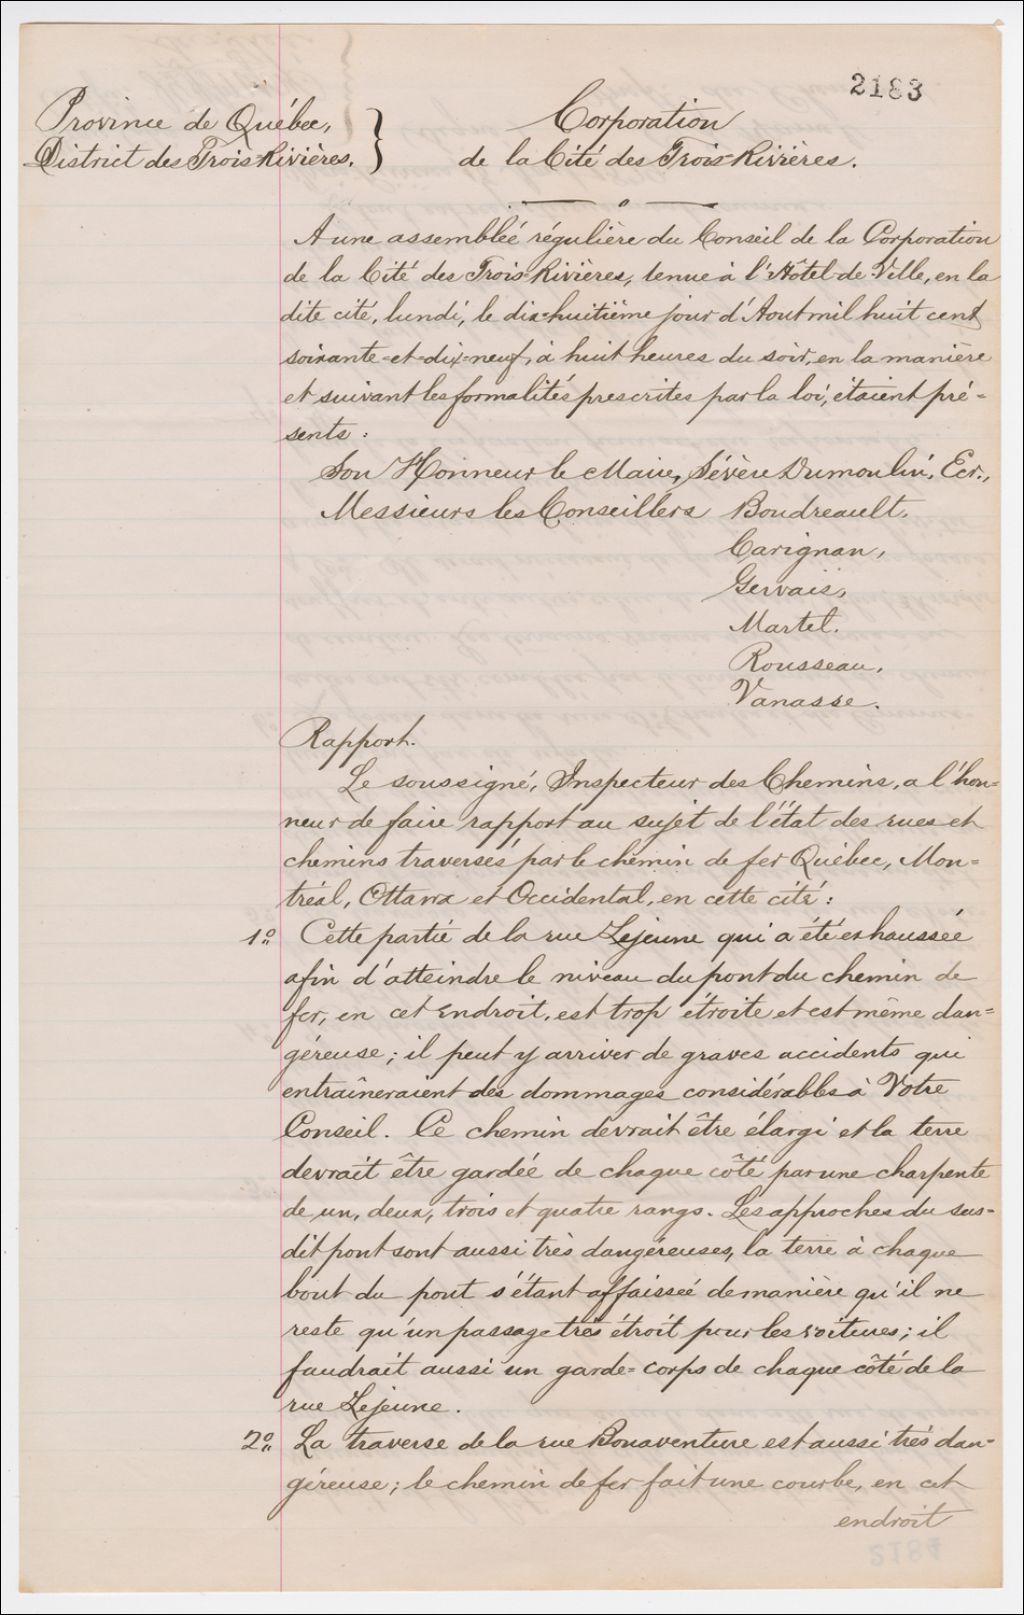 2183
Province de Québec,
District des Trois-Rivières.
Corporation
de la Cité des Trois-Rivières.
A une assemblée régulière du Conseil de la Corporation
de la Cité des Trois-Rivières, tenue à l'Hôtel-de-Ville, en la
dite cité, lundi, le dix-huitième jour d'Aout mil huit cent
soixante-et-dix-neuf, à huit heures du soir, en la manière
et suivant les formalités prescrites par la loi, étaient pré-
sents:
Son Honneur le Maire, Sévère Dumoulin, Ecr.,
Messieurs les Conseillers Boudreault.
Carignan,
Gervais,
Martel.
Rousseau,
Vanasse.
Rapport.
Le soussigné, Inspecteur des Chemins, a l'hon-
neur de faire rapport au sujet de l'état des rues et
chemins traversés par le chemin de fer Québec, Mon-
tréal, Ottawa et Occidental, en cette cité:
1o. Cette partie de la rue Lejeune qui a été exhaussée
afin d'atteindre le niveau du pont du chemin de
fer, en cet endroit, est trop étroite et est même dan-
géreuse; il peut y arriver de graves accidents qui
entraîneraient des dommages considérables à Votre
Conseil. Ce chemin devrait être élargi et la terre
devrait être gardée de chaque côté par une charpente
de un, deux, trois et quatre rangs. Les approches du sus-
dit pont sont aussi très dangéreuses, la terre à chaque
bout du pont s'étant affaissée de manière qu'il ne
reste qu'un passage très étroit pour les voitures; il
faudrait aussi un garde-corps de chaque côté de la
rue Lejeune.
2o. La traverse de la rue Bonaventure est aussi très dan-
géreuse; le chemin de fer fait une courbe, en cet
endroit
2184